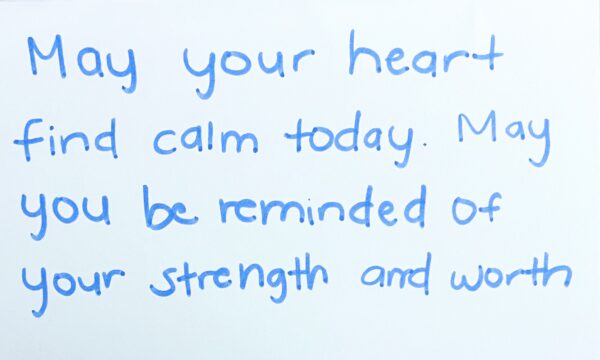 May your heart
find calm today. May
you be reminded of
your strength and worth